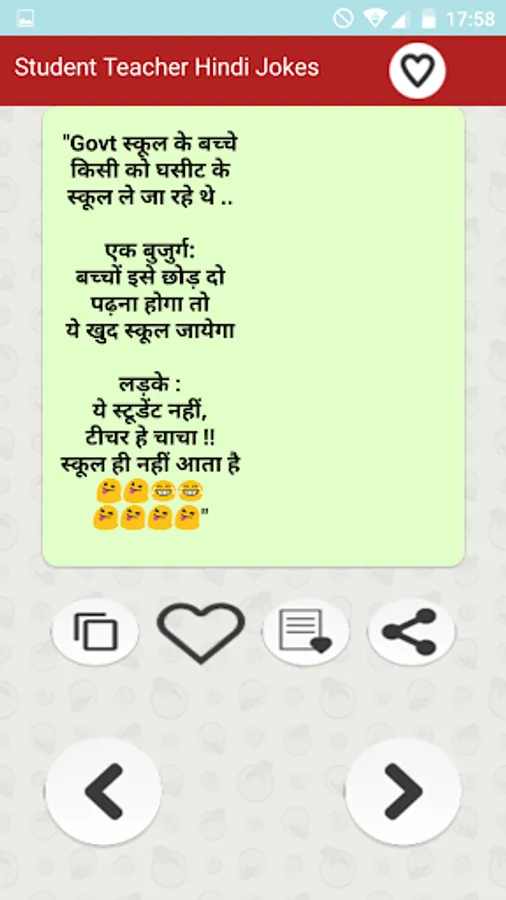 17:58
Student Teacher Hindi Jokes
"Govt स्कूल के बच्चे
किसी को घसीट के
स्कूल ले जा रहे थे ..
एक बुजुर्ग:
बच्चों इसे छोड़ दो
पढ़ना होगा तो
ये खुद स्कूल जायेगा
लड़के :
ये स्टूडेंट नहीं,
टीचर हे चाचा !!
स्कूल ही नहीं आता है
😜😜😂😂
😜😜😜😜"